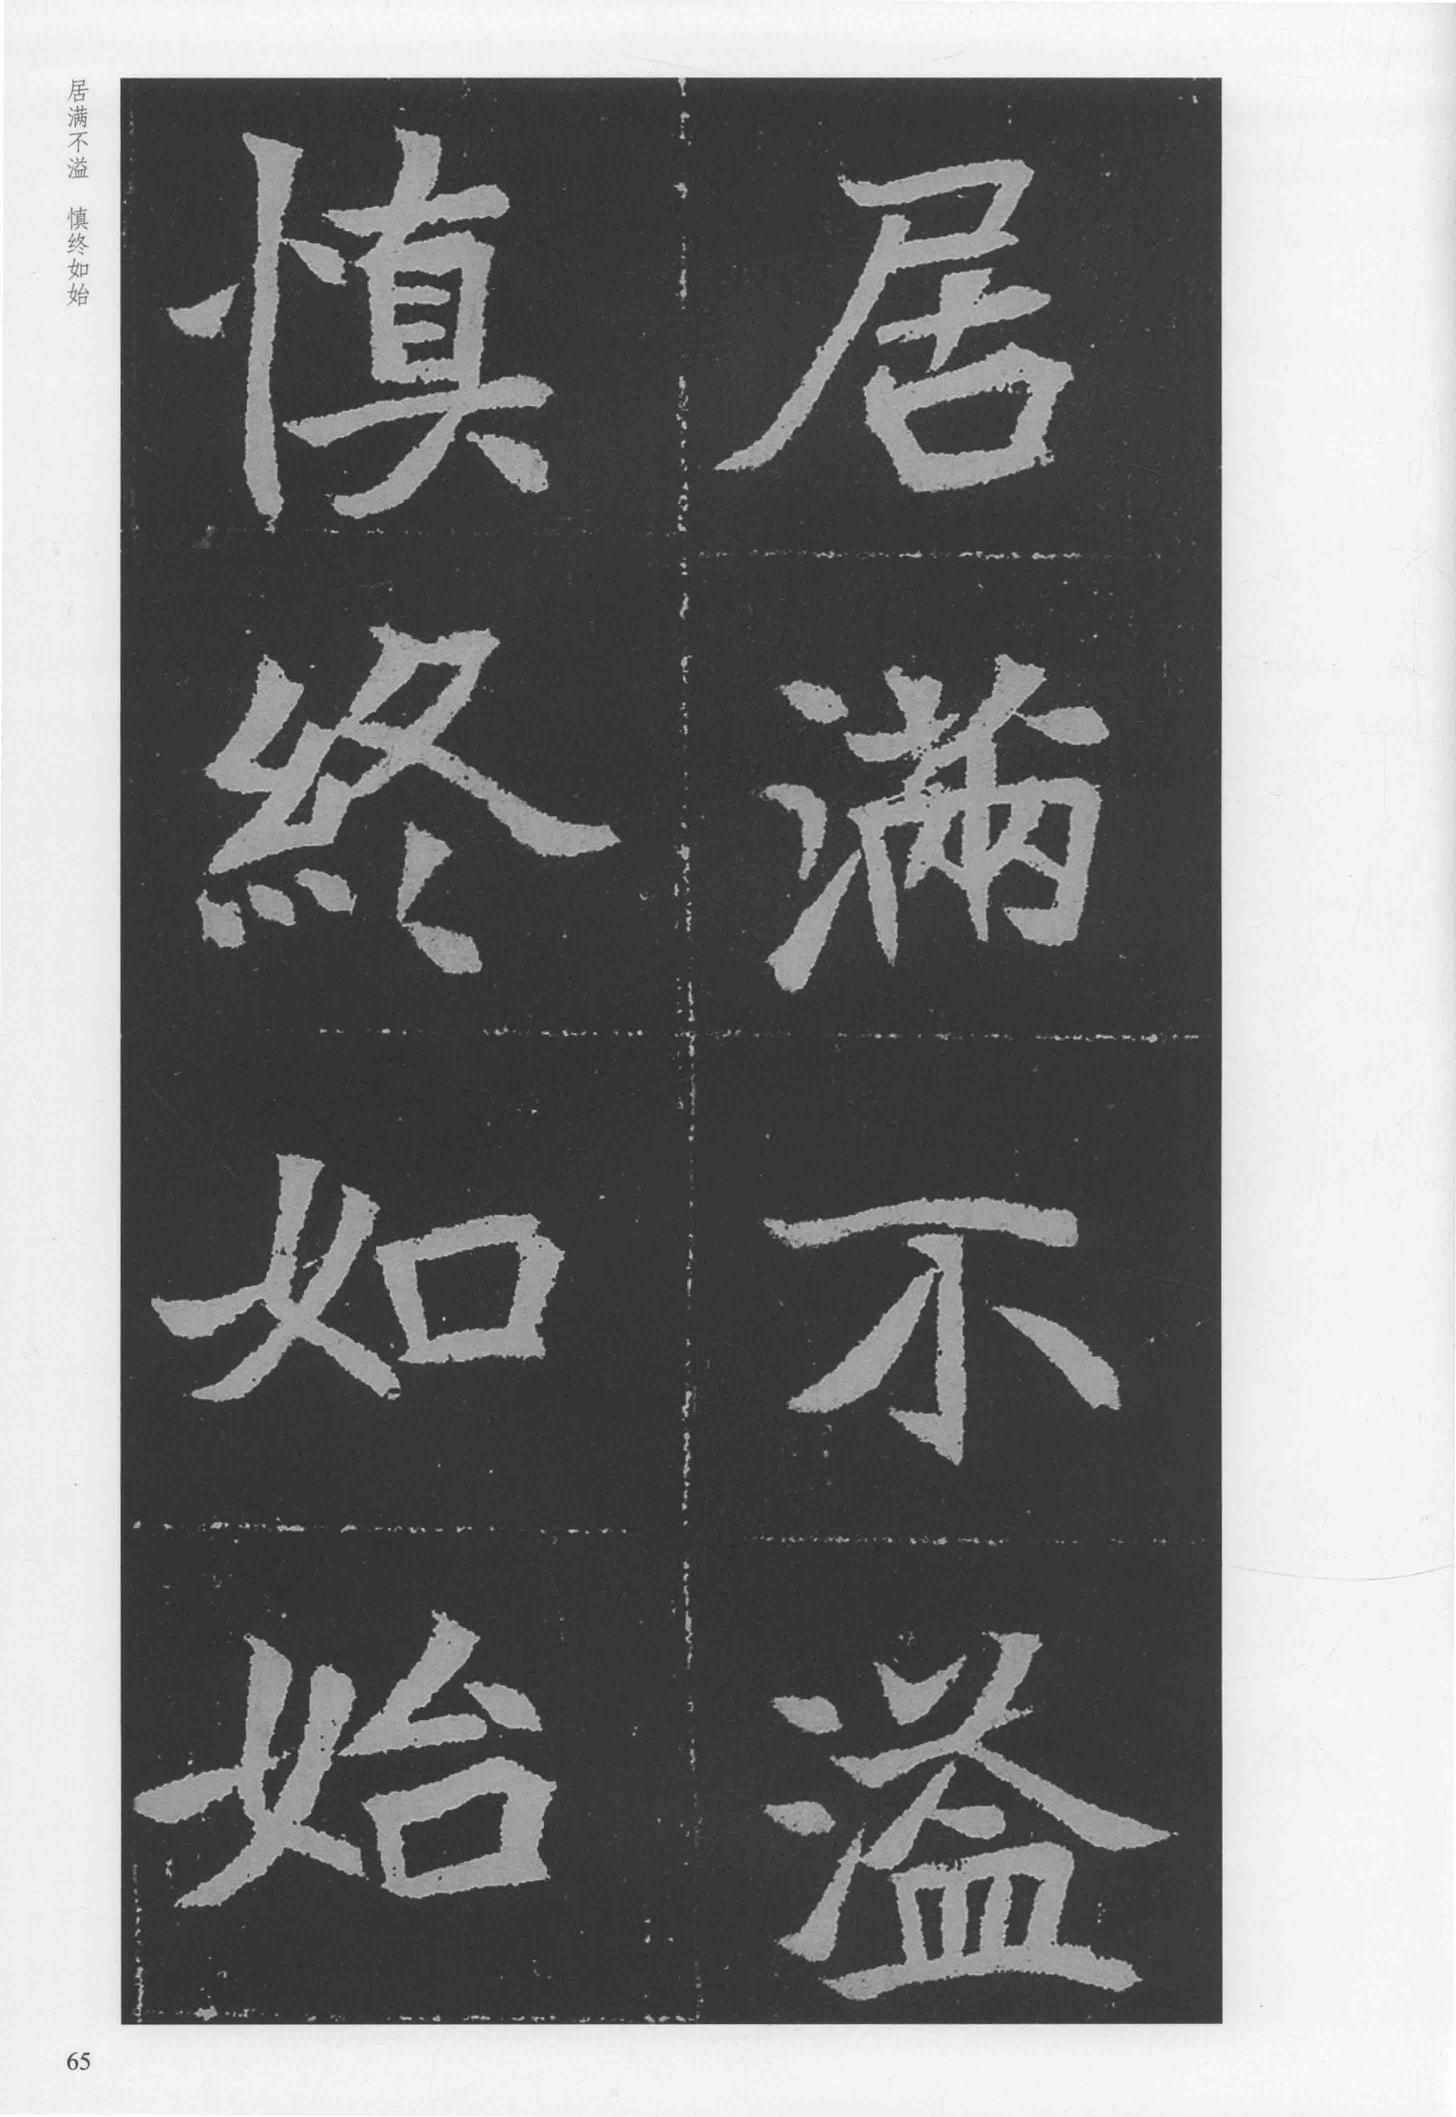 居滿不溢
慎終如始
居满不溢 慎终如始
65